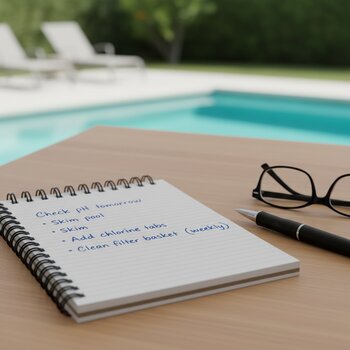 Check pH tomorrow
• Skim pool
• Skim
• Add chlorine tabs
• Clean filter basket (weekly)